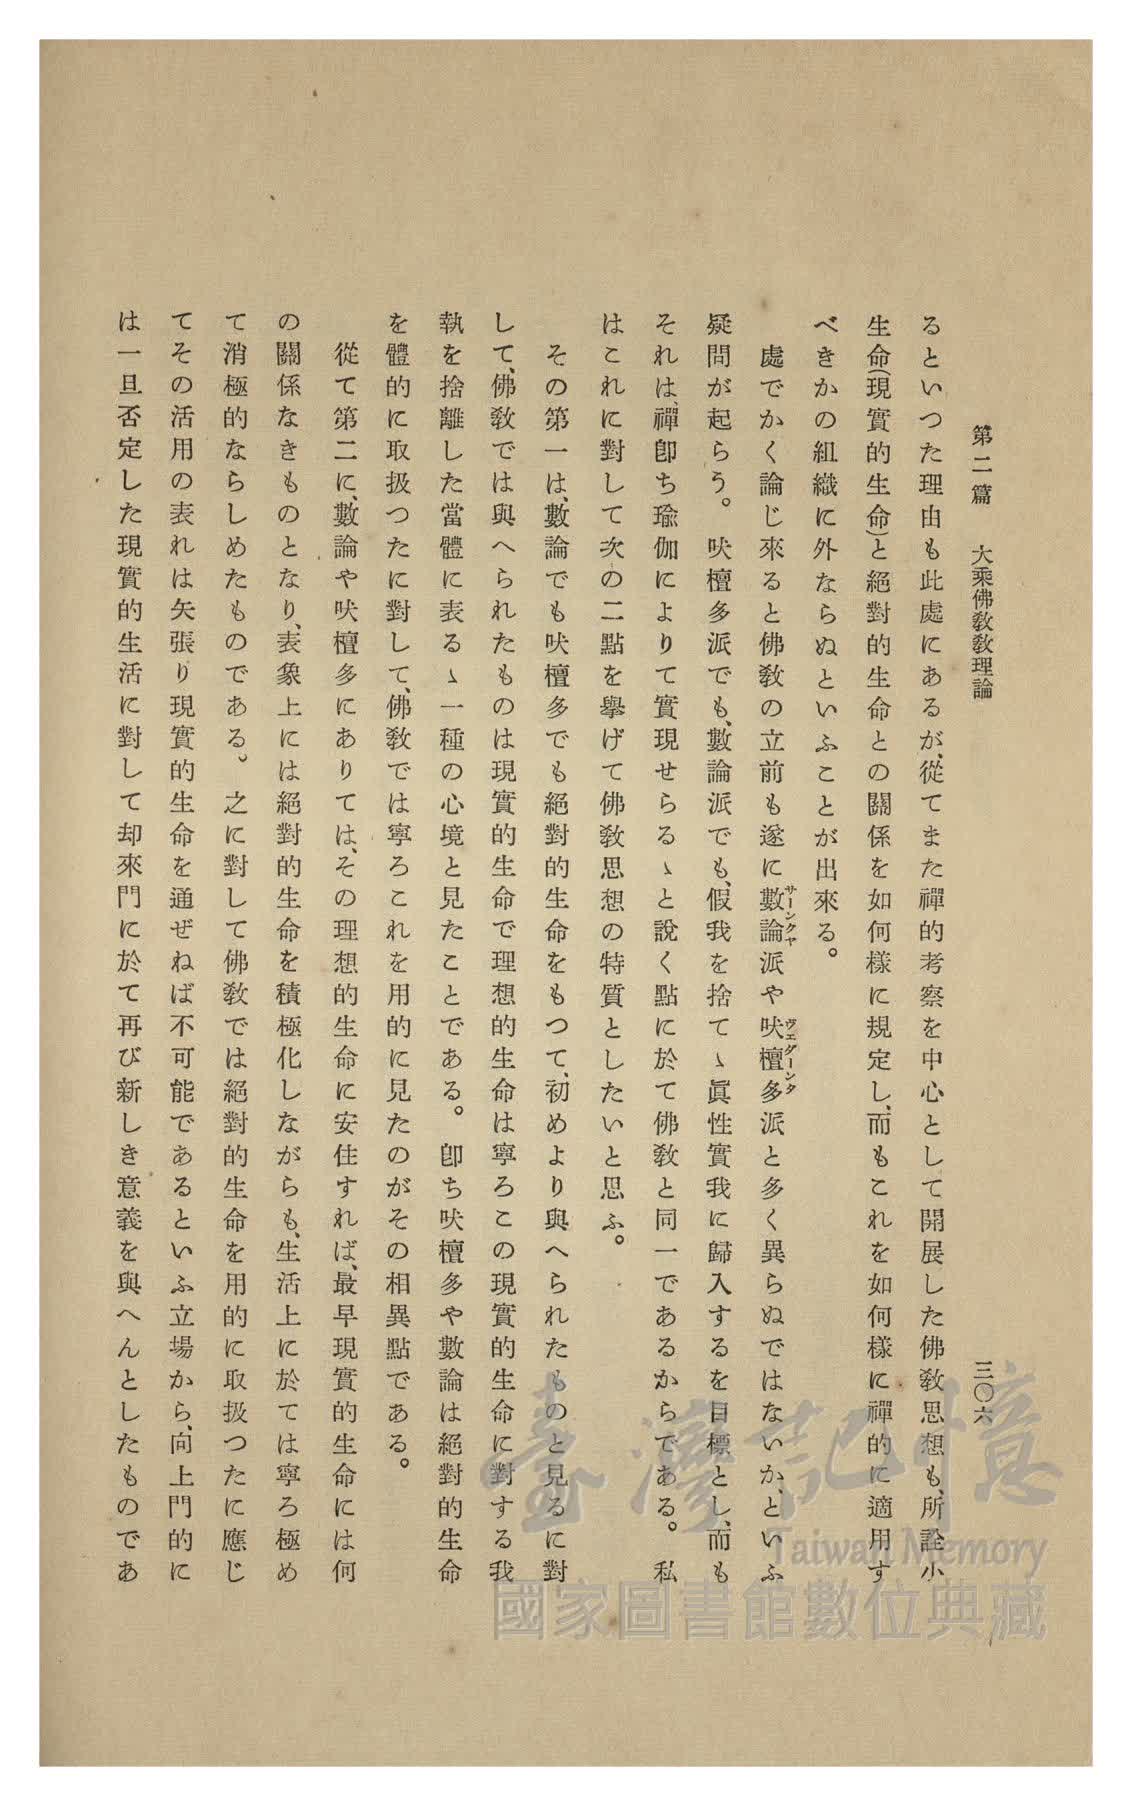 第二篇　大乘佛敎敎理論　三〇六
るといつた理由も此處にあるが、從てまた禪的考察を中心として開展した佛敎思想も、所詮小
生命(現實的生命)と絕對的生命との關係を如何樣に規定し、而もこれを如何樣に禪的に適用す
べきかの組織に外ならぬといふことが出來る。
處でかく論じ來ると佛敎の立前も遂に數論派や吠檀多派と多く異らぬではないか、といふ
サーンクヤ　ヴェダーンタ
疑問が起らう。吠檀多派でも、數論派でも、假我を捨てゝ眞性實我に歸入するを目標とし、而も
それは、禪卽ち瑜伽によりて實現せらるゝと說く點に於て佛敎と同一であるからである。私
はこれに對して次の二點を擧げて佛敎思想の特質としたいと思ふ。
その第一は、數論でも吠檀多でも絕對的生命をもつて、初めより與へられたものと見るに對
して、佛敎では與へられたものは現實的生命で理想的生命は寧ろこの現實的生命に對する我
執を捨離した當體に表るゝ一種の心境と見たことである。卽ち吠檀多や數論は絕對的生命
を體的に取扱つたに對して、佛敎では寧ろこれを用的に見たのがその相異點である。
從て第二に、數論や吠檀多にありては、その理想的生命に安住すれば、最早現實的生命には何
の關係なきものとなり、表象上には絕對的生命を積極化しながらも、生活上に於ては寧ろ極め
て消極的ならしめたものである。之に對して佛敎では絕對的生命を用的に取扱つたに應じ
てその活用の表れは矢張り現實的生命を通ぜねば不可能であるといふ立場から、向上門的に
は一旦否定した現實的生活に對して却來門に於て再び新しき意義を與へんとしたものであ
臺灣記憶
Taiwan Memory
國家圖書館數位典藏